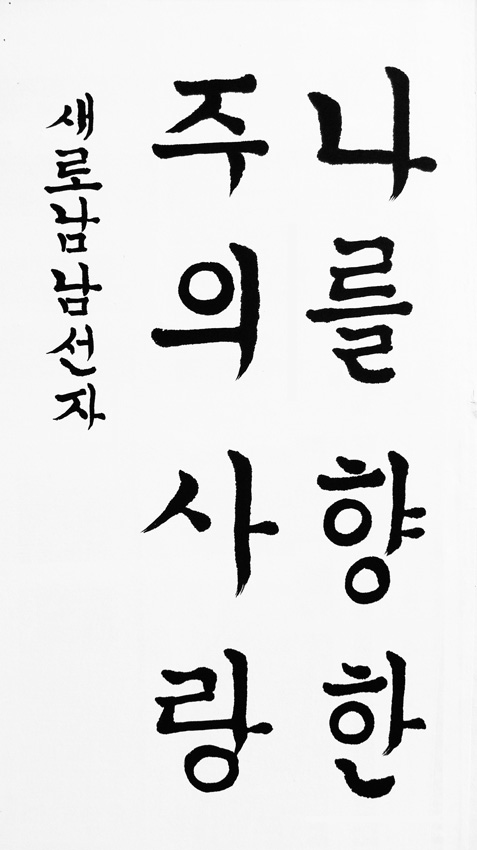 나를향한
주의사랑
새로남남선자